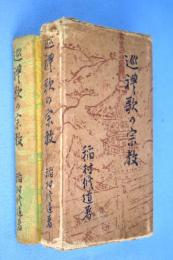 巡礼歌の宗教
稲村修道著
巡禮歌の宗教
稲村修道著